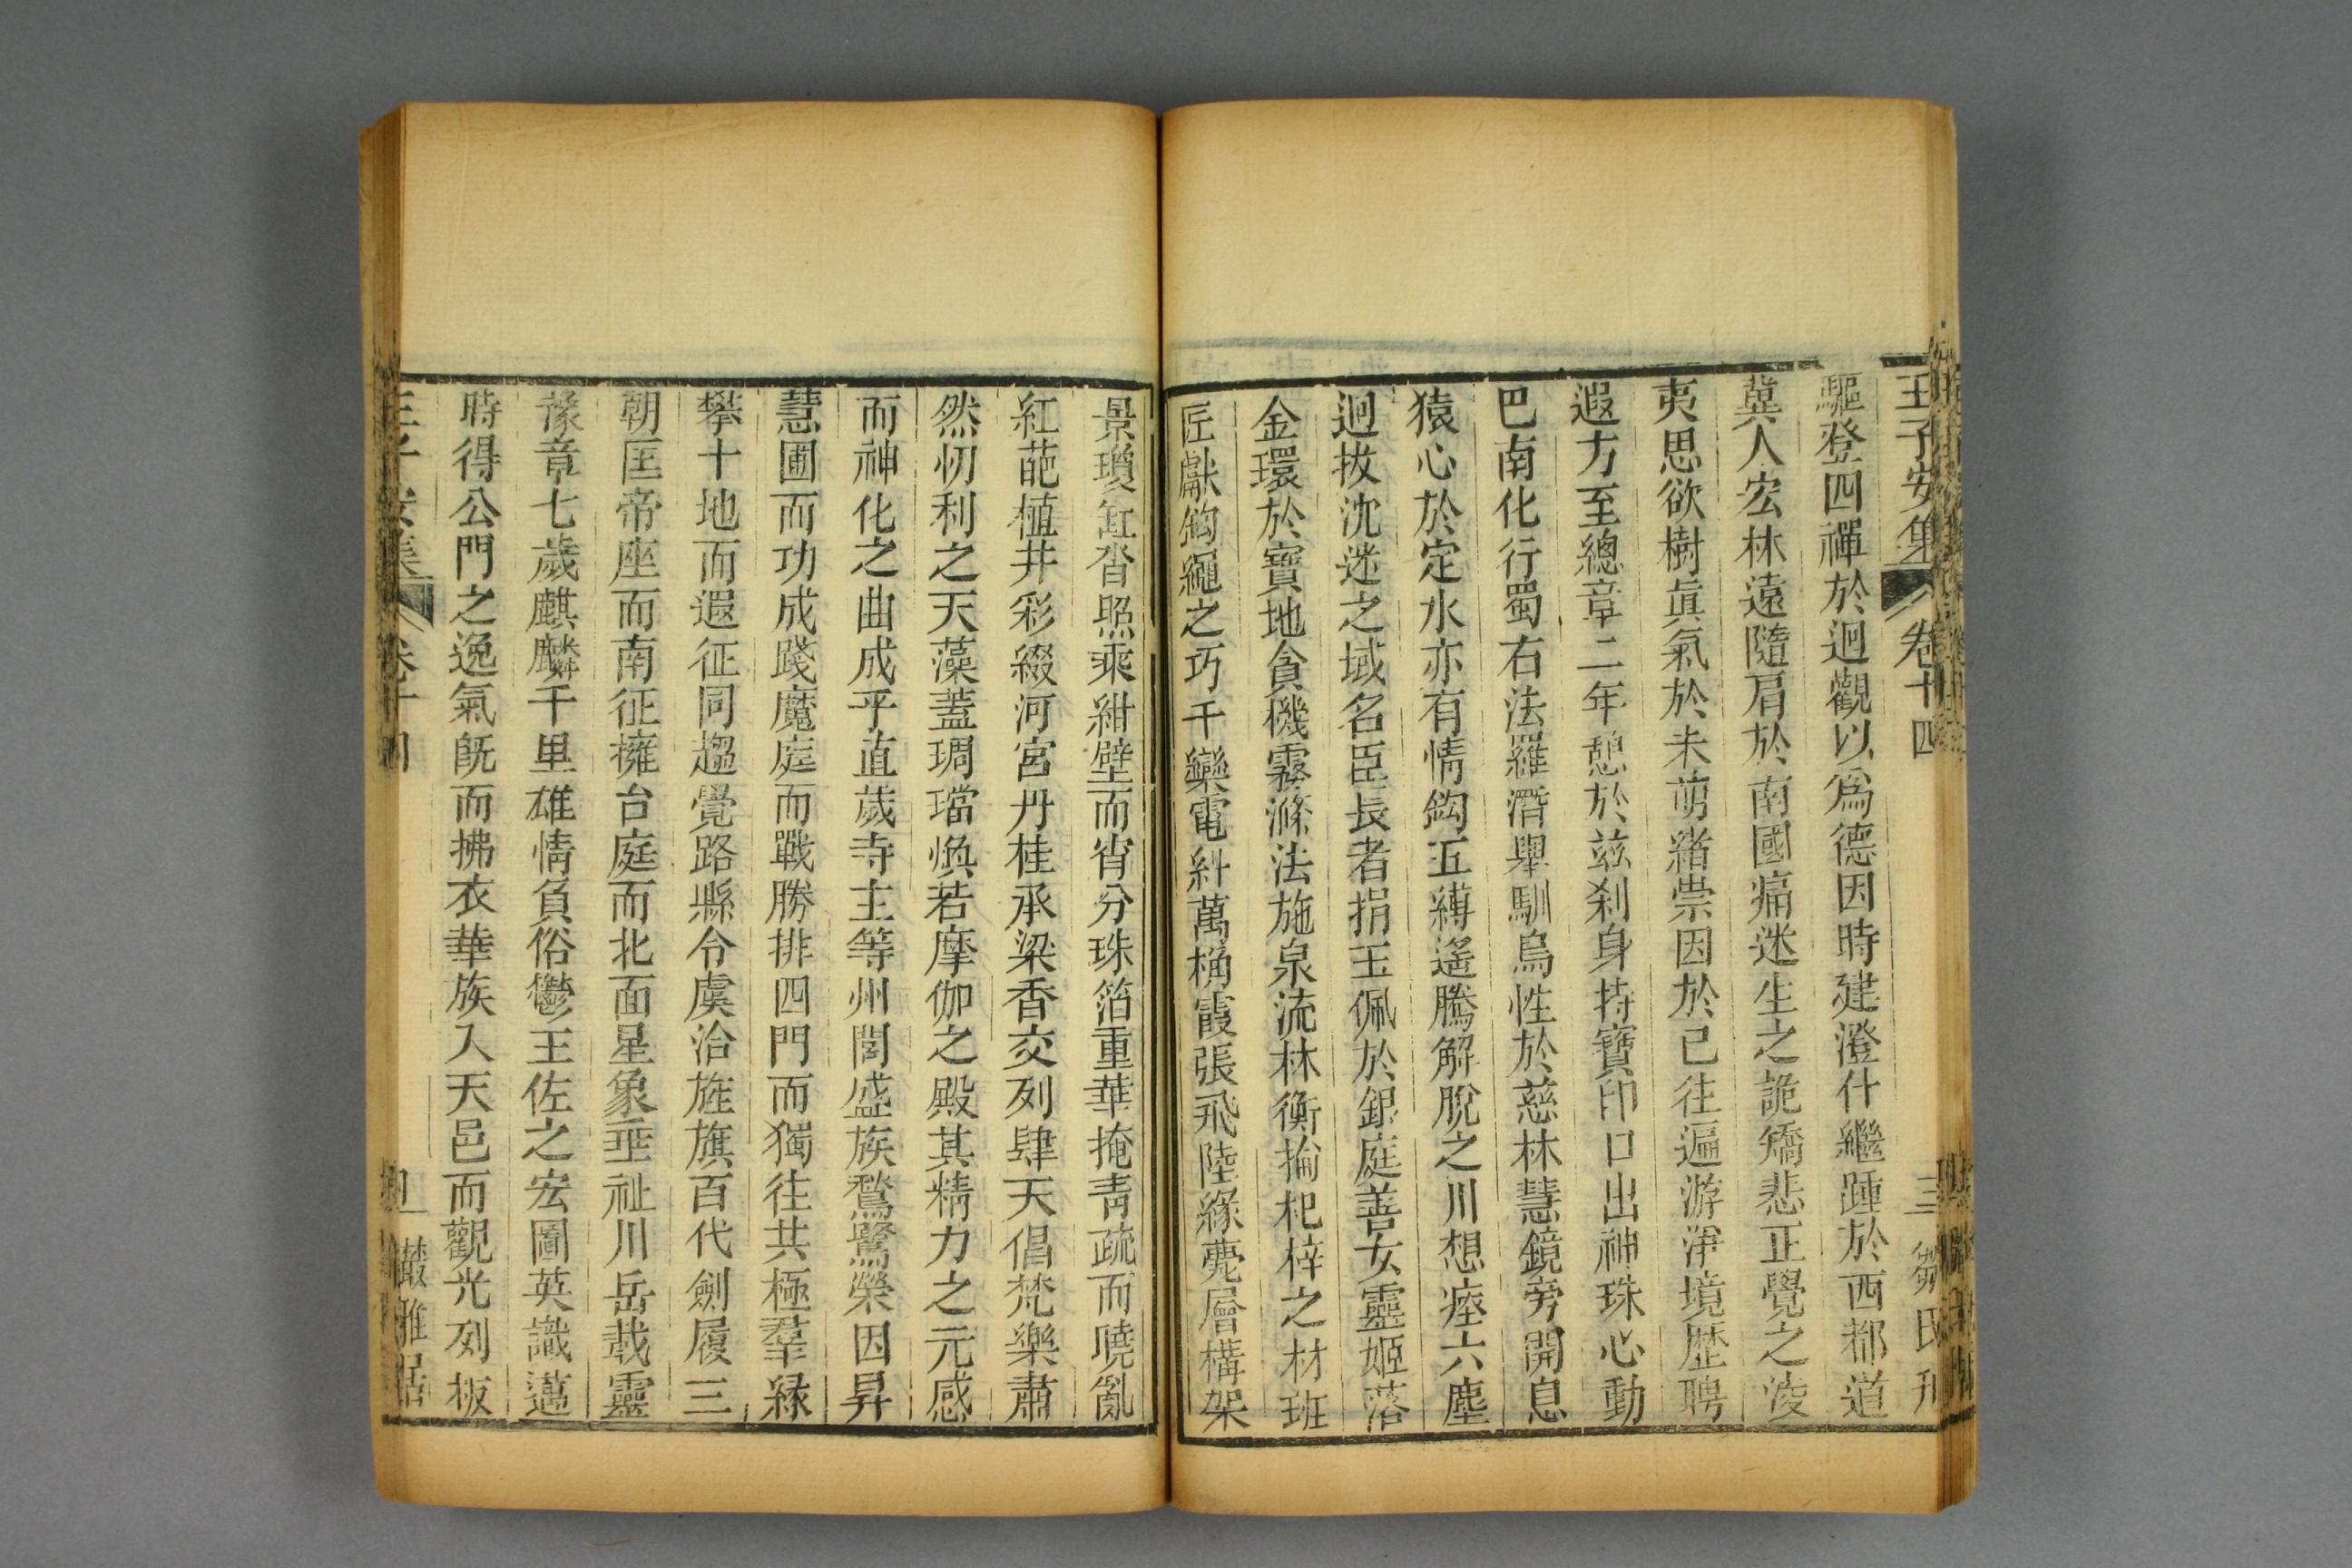 王子安集 卷十四 三 鄒氏刊
驅登四禪於迥觀以爲德因時建澄什繼踵於西都道
冀人宏林遠隨肩於南國痛迷生之詭矯悲正覺之淩
夷思欲樹眞氣於未萌緒崇因於已往遍游淨境歷聘
遐方至總章二年憩於兹刹身持寶印口出神珠心動
巴南化行蜀右法羅潛舉馴烏性於慈林慧鏡旁開息
猿心於定水亦有情鈎五縛遙騰解脫之川想瘞六塵
迥拔沈迷之域名臣長者捐玉佩於銀庭善女靈姬落
金環於寶地貪機霧滌法施泉流林衡掄杞梓之材班
匠獻鈎繩之巧千欒電糾萬桷霞張飛陸緣甍層構架
景瓊缸沓照乘紺壁而宵分珠箔重華掩青疏而曉亂
紅葩植井彩綴河宮丹桂承梁香交列肆天倡梵樂肅
然忉利之天藻蓋琱璫煥若摩伽之殿其精力之元感
而神化之曲成乎直歲寺主等州閭盛族鶖鷺榮因昇
慧圃而功成踐魔庭而戰勝排四門而獨往共極羣緣
攀十地而遐征同趨覺路縣令虞洽旌旗百代劍履三
朝匡帝座而南征擁台庭而北面星象垂祉川岳載靈
豫章七歲麒麟千里雄情負俗鬱王佐之宏圖英識邁
時得公門之逸氣旣而拂衣華族入天邑而觀光列板
王子安集 卷十四 四 叢雅居